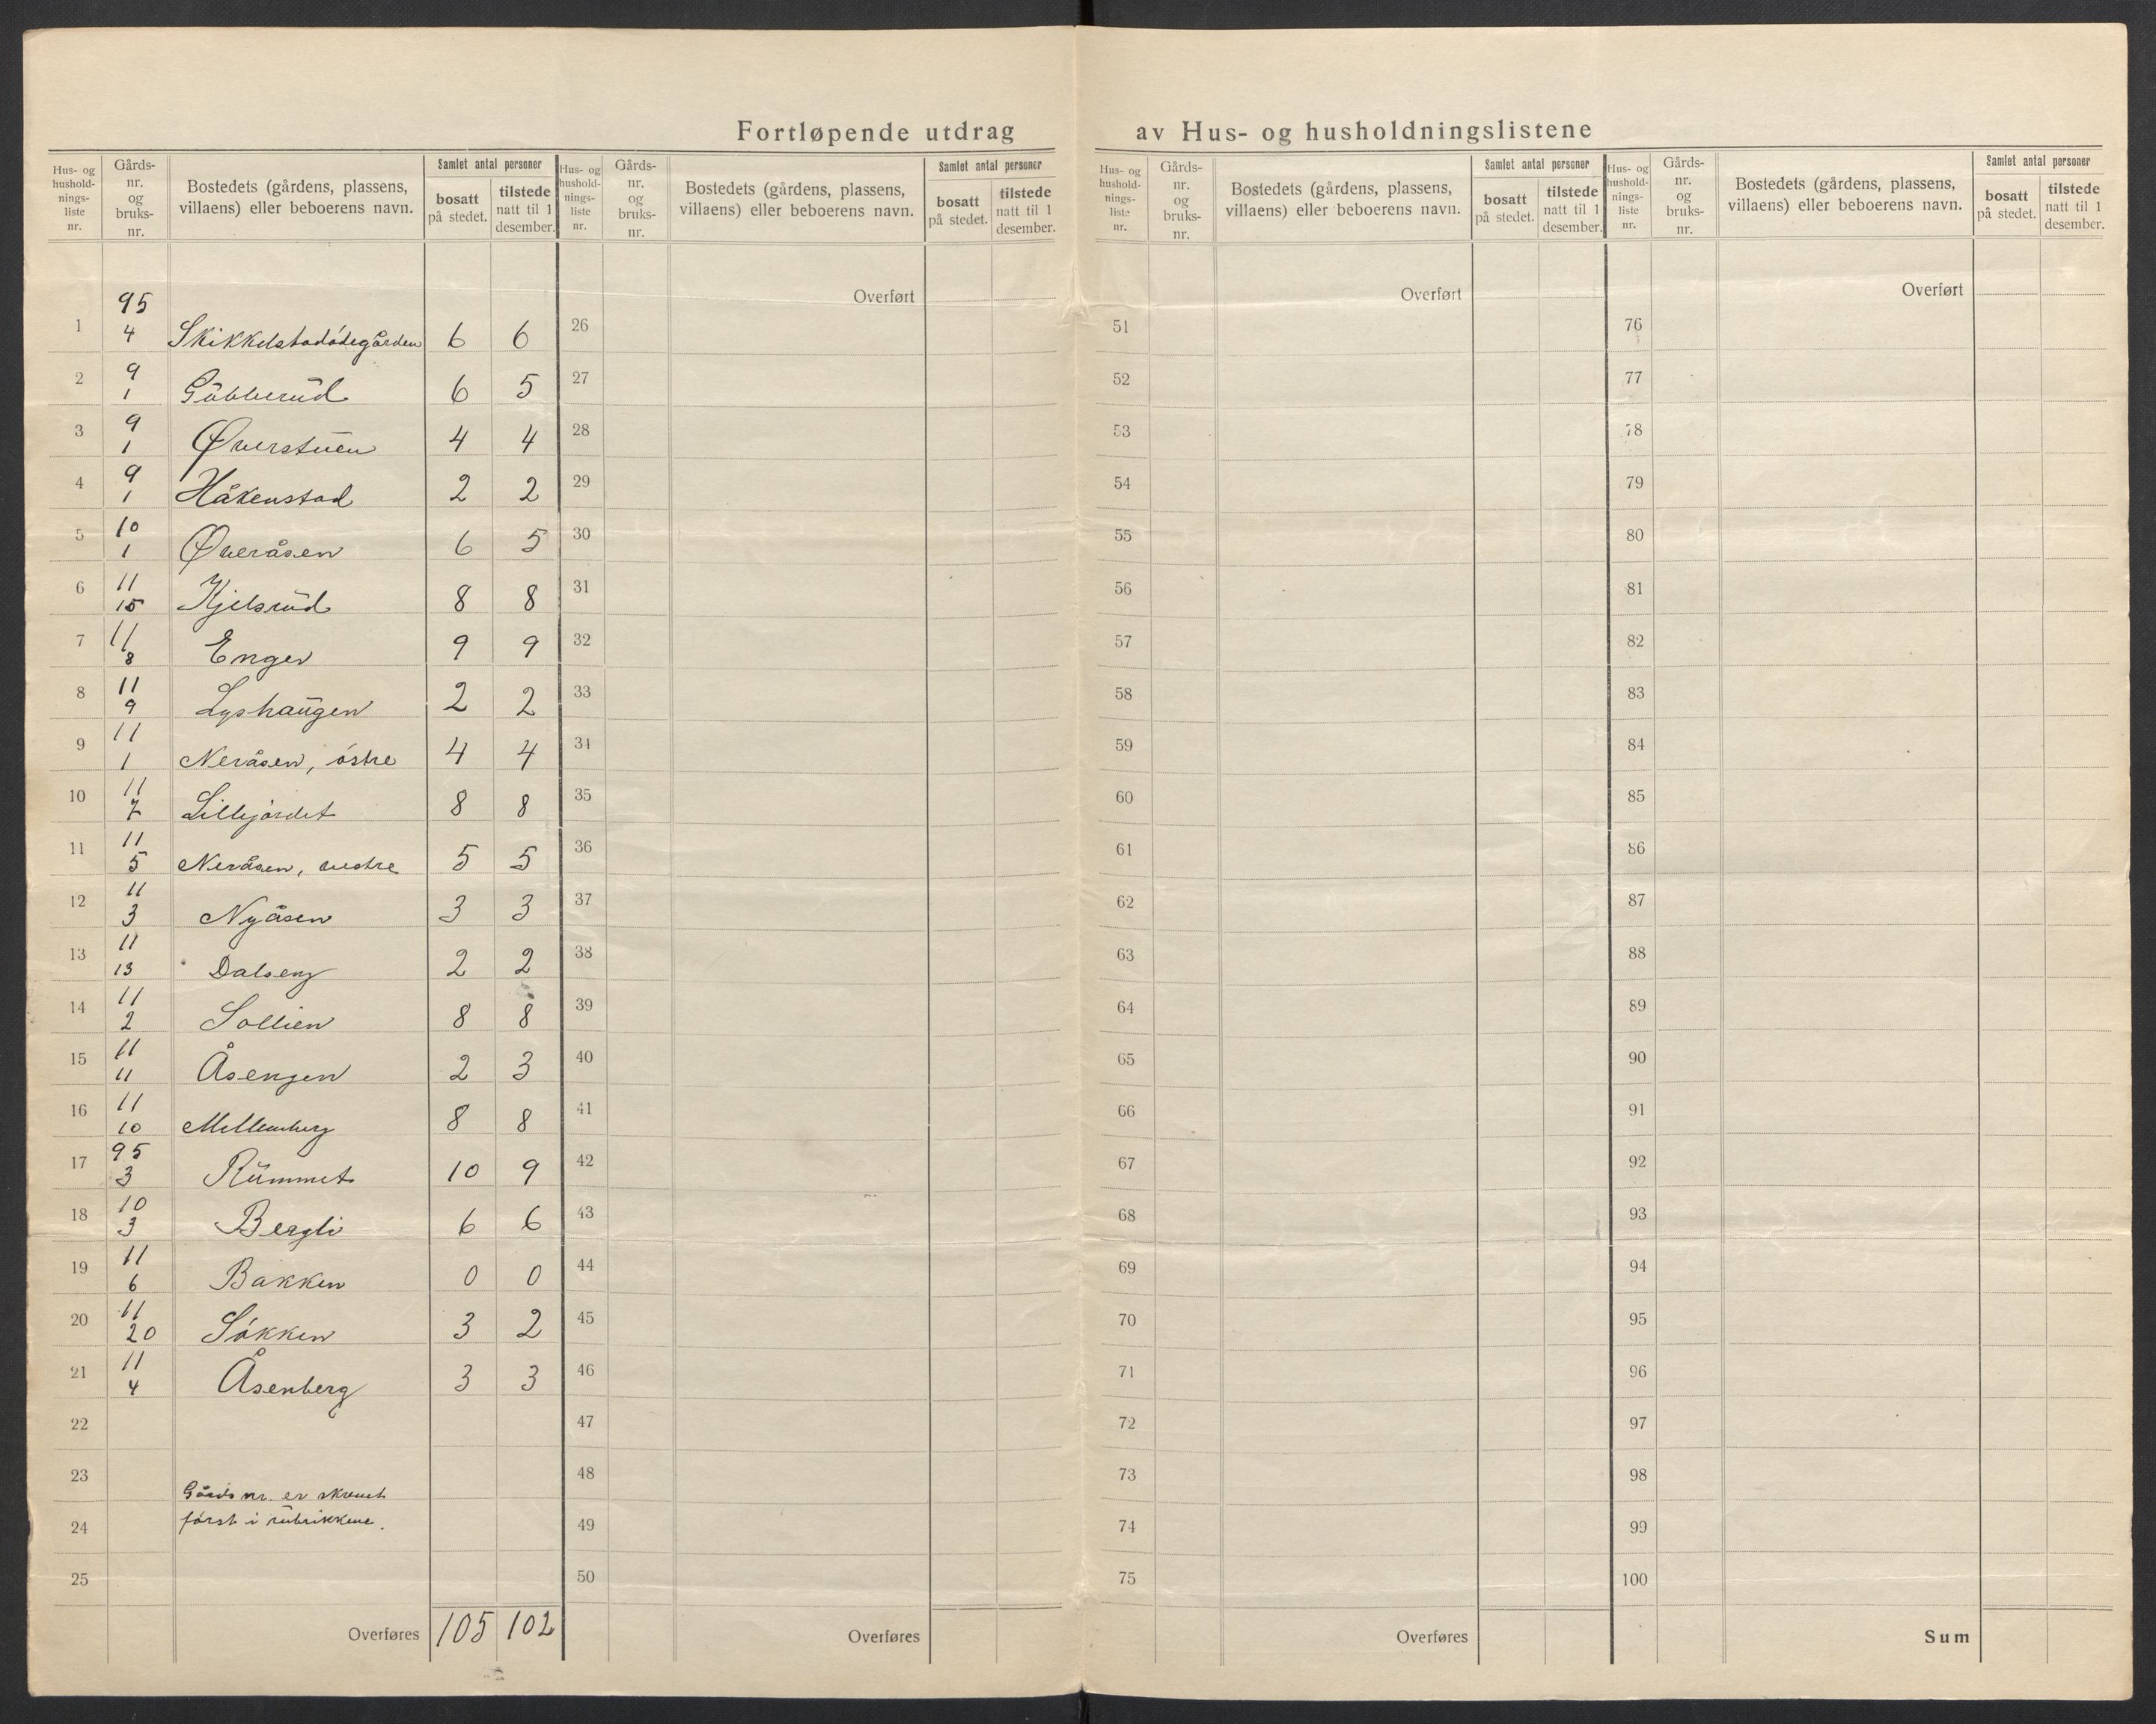 Fortløpende utdrag av Hus- og husholdningslistene
Hus- og hushold-nings-liste nr. Gårds-nr. og bruks-nr. Bostedets (gårdens, plassens, villaens) eller beboerens navn. Samlet antal personer bosatt på stedet. tilstede natt til 1 desember.
Hus- og hushold-nings-liste nr. Gårds-nr. og bruks-nr. Bostedets (gårdens, plassens, villaens) eller beboerens navn. Samlet antal personer bosatt på stedet. tilstede natt til 1 desember.
Hus- og hushold-nings-liste nr. Gårds-nr. og bruks-nr. Bostedets (gårdens, plassens, villaens) eller beboerens navn. Samlet antal personer bosatt på stedet. tilstede natt til 1 desember.
Hus- og hushold-nings-liste nr. Gårds-nr. og bruks-nr. Bostedets (gårdens, plassens, villaens) eller beboerens navn. Samlet antal personer bosatt på stedet. tilstede natt til 1 desember.
Overført Overført Overført
1 95 4 Skikkelstadødegården 6 6 26 51 76
2 9 1 Gubberud 6 5 27 52 77
3 9 1 Øverstuen 4 4 28 53 78
4 9 1 Håkenstad 2 2 29 54 79
5 10 1 Øveråsen 6 5 30 55 80
6 11 15 Kjelsrud 8 8 31 56 81
7 11 8 Enger 9 9 32 57 82
8 11 9 Lyshaugen 2 2 33 58 83
9 11 1 Neråsen, østre 4 4 34 59 84
10 11 7 Lillejordet 8 8 35 60 85
11 11 5 Neråsen, vestre 5 5 36 61 86
12 11 3 Nyåsen 3 3 37 62 87
13 11 13 Dalseng 2 2 38 63 88
14 11 2 Sollien 8 8 39 64 89
15 11 11 Åsengen 2 3 40 65 90
16 11 10 Mellemberg 8 8 41 66 91
17 95 3 Rummet 10 9 42 67 92
18 10 3 Bergli 6 6 43 68 93
19 11 6 Bakken 0 0 44 69 94
20 11 20 Søkken 3 2 45 70 95
21 11 4 Åsenberg 3 3 46 71 96
22 47 72 97
23 48 73 98
Gårds nr. er skrevet
først i rubrikkene.
24 49 74 99
25 50 75 100
Overføres 105 102 Overføres Overføres Sum